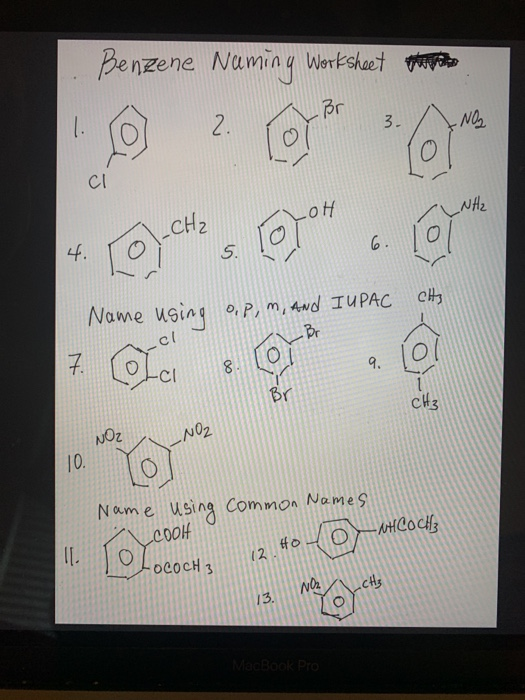 Benzene Naming Worksheet
1. Cl
2. Br
3. NO2
4. CH2
5. OH
6. NH2
Name using o, p, m, AND IUPAC
7. Cl Cl
8. Br Br
9. CH3 CH3
10. NO2 NO2
Name using Common Names
11. COOH OCOCH3
12. HO NHCOCH3
13. NO2 CH3
MacBook Pro